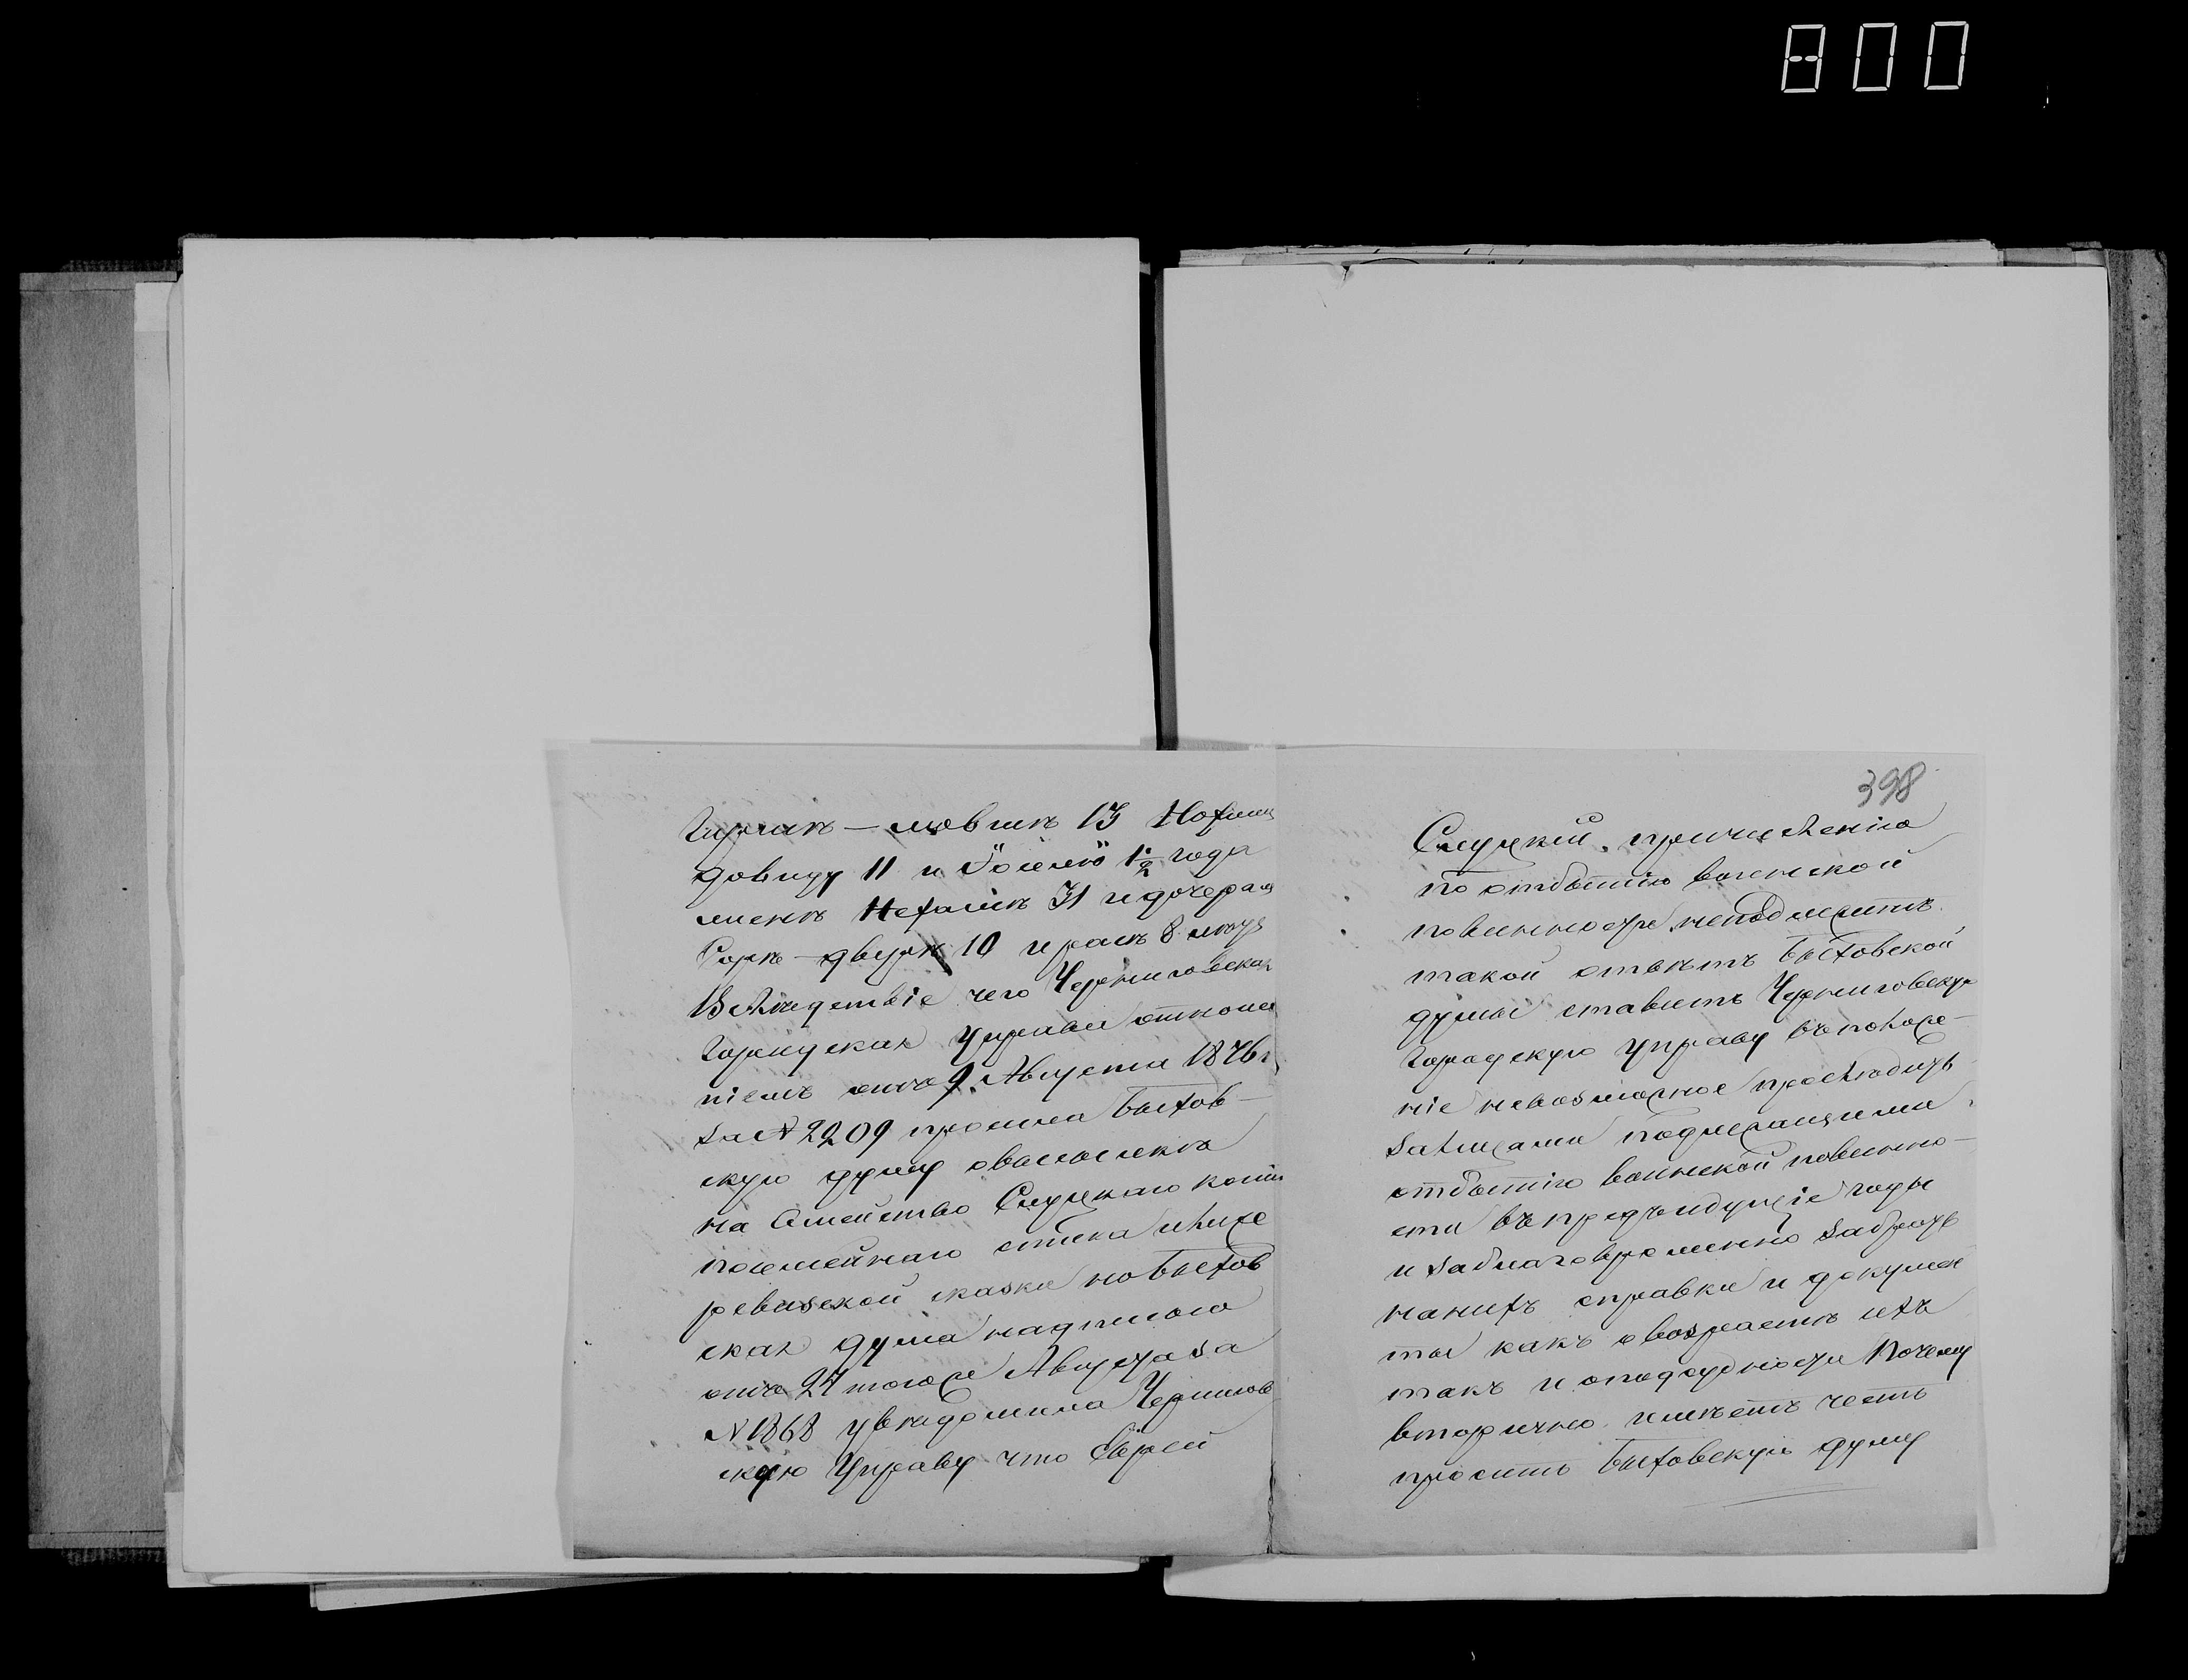 800
398
Гиршъ-лювикъ 13 Нохима
довиду 11 и Іосилю 1½ года
женъ Нехамъ 31 и дочерамъ
Соръ-двусъ 10 и рамъ 8 лѣтъ
Вслѣдствіе чего Черниговская
Городская Управа отноше
ніемъ отъ 9. Августа 1876 г.
за № 2209 просила Быхов-
скую думу о высылкѣ
на Семейство Слуцкаго копіи
посемейнаго списка или же
ревизской сказки но Быхов
ская дума надписью
отъ 27 того же Августа за
№ 1868 увѣдомила Чернигов
скую Управу что Еврей
Слуцкій. причисленію
по отбытію воинской
повинности неподлежитъ.
такой отвѣтъ Быховской
думы ставитъ Черниговскую
Городскую Управу въ положе-
ніе невозможное прослѣдить
за лицами подлежащими
отбытію воинской повинно-
сти въ предъидущіе годы
и заблаговременно забрать
на нихъ справки и докумен
ты какъ о возрастѣ ихъ
такъ и о подсудности Почему
вторично имѣетъ честь
просить Быховскую думу